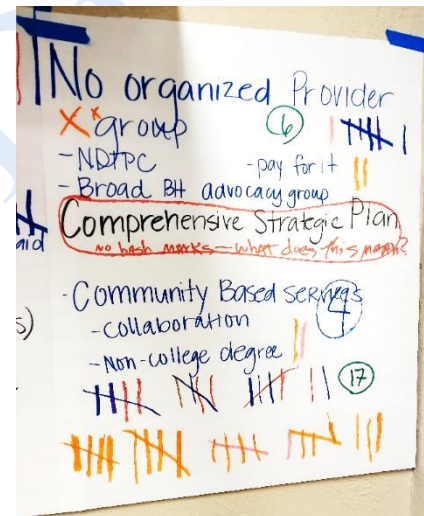 No organized Provider
X * group 6
- NDTPC - pay for it
- Broad BH advocacy group
Comprehensive Strategic Plan
aid
no hash marks - what does this mean?
- Community Based services
4
s)
- collaboration
- Non-college degree
17